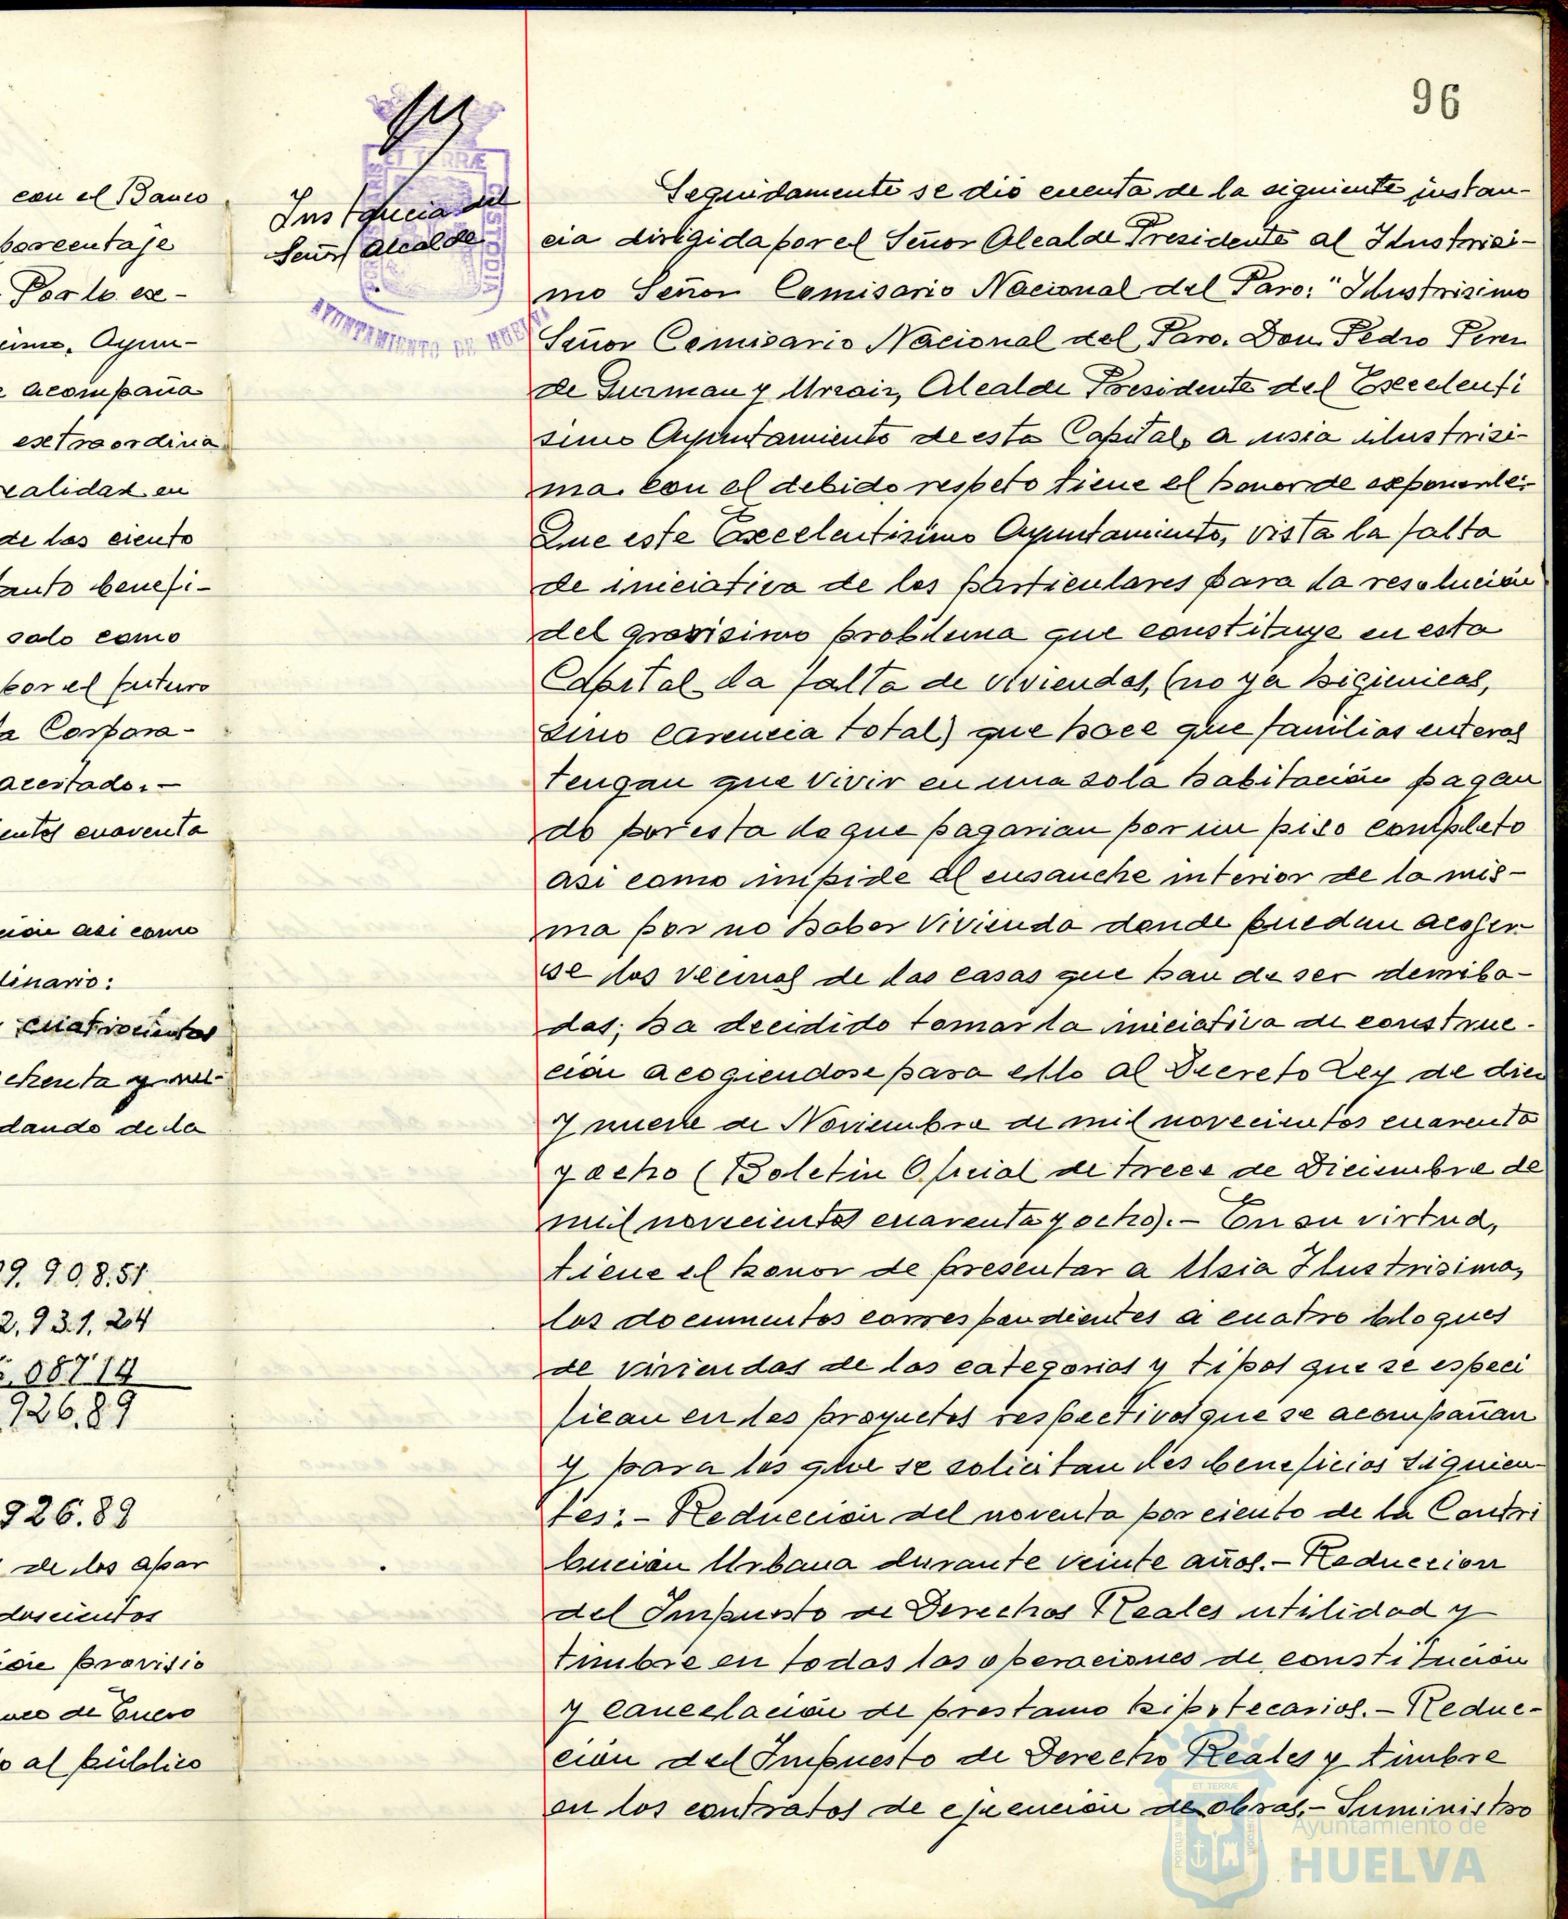 96
con el Banco
porcentaje
Por lo ex-
simo, Ayun-
acompaña
extraordina
realidad en
de las ciento
tanto benefi-
solo como
por el futuro
la Corpora-
acertado.-
cuarenta
ción asi como
dinario:
cuatrocientas
ochenta y
dando de la
9.908.51
2.931.24
08714
926.89
926.89
de los apar
doscientos
provisio
de Enero
o al público
ET TERRÆ
CUSTODIA
AYUNTAMIENTO DE HUELVA
Instancia del
Señor Alcalde
Seguidamente se dio cuenta de la siguiente instan-
cia dirigida por el Señor Alcalde Presidente al Ilustrisi-
mo Señor Comisario Nacional del Paro: "Ilustrisimo
Señor Comisario Nacional del Paro. Don Pedro Perez
de Guzman y Urzaiz, Alcalde Presidente del Excelenti
simo Ayuntamiento de esta Capital, a usia ilustrisi-
ma con el debido respeto tiene el honor de exponerle:-
Que este Excelentisimo Ayuntamiento, vista la falta
de iniciativa de los particulares para la resolución
del gravisimo problema que constituye en esta
Capital la falta de viviendas, (no ya higienicas,
sino carencia total) que hace que familias enteras
tengan que vivir en una sola habitación pagan
do por esta lo que pagarian por un piso completo
asi como impide el ensanche interior de la mis-
ma por no haber vivienda donde puedan acojer-
se los vecinos de las casas que han de ser derriba-
das; ha decidido tomar la iniciativa de construc-
ción acogiendose para ello al Decreto Ley de diez
y nueve de Noviembre de mil novecientos cuarenta
y ocho (Boletin Oficial de trece de Diciembre de
mil novecientos cuarenta y ocho).- En su virtud,
tiene el honor de presentar a Usia Ilustrisima,
los documentos correspondientes a cuatro bloques
de viviendas de las categorias y tipos que se especi
fican en los proyectos respectivos que se acompañan
y para los que se solicitan los beneficios siguien-
tes:- Reducción del noventa por ciento de la Contri
bución Urbana durante veinte años.- Reduccion
del Impuesto de Derechos Reales utilidad y
timbre en todas las operaciones de constitución
y cancelación de prestamo hipotecarios.- Reduc-
ción del Impuesto de Derecho Reales y timbre
en los contratos de ejecución de obras.- Suministro
Ayuntamiento de
HUELVA